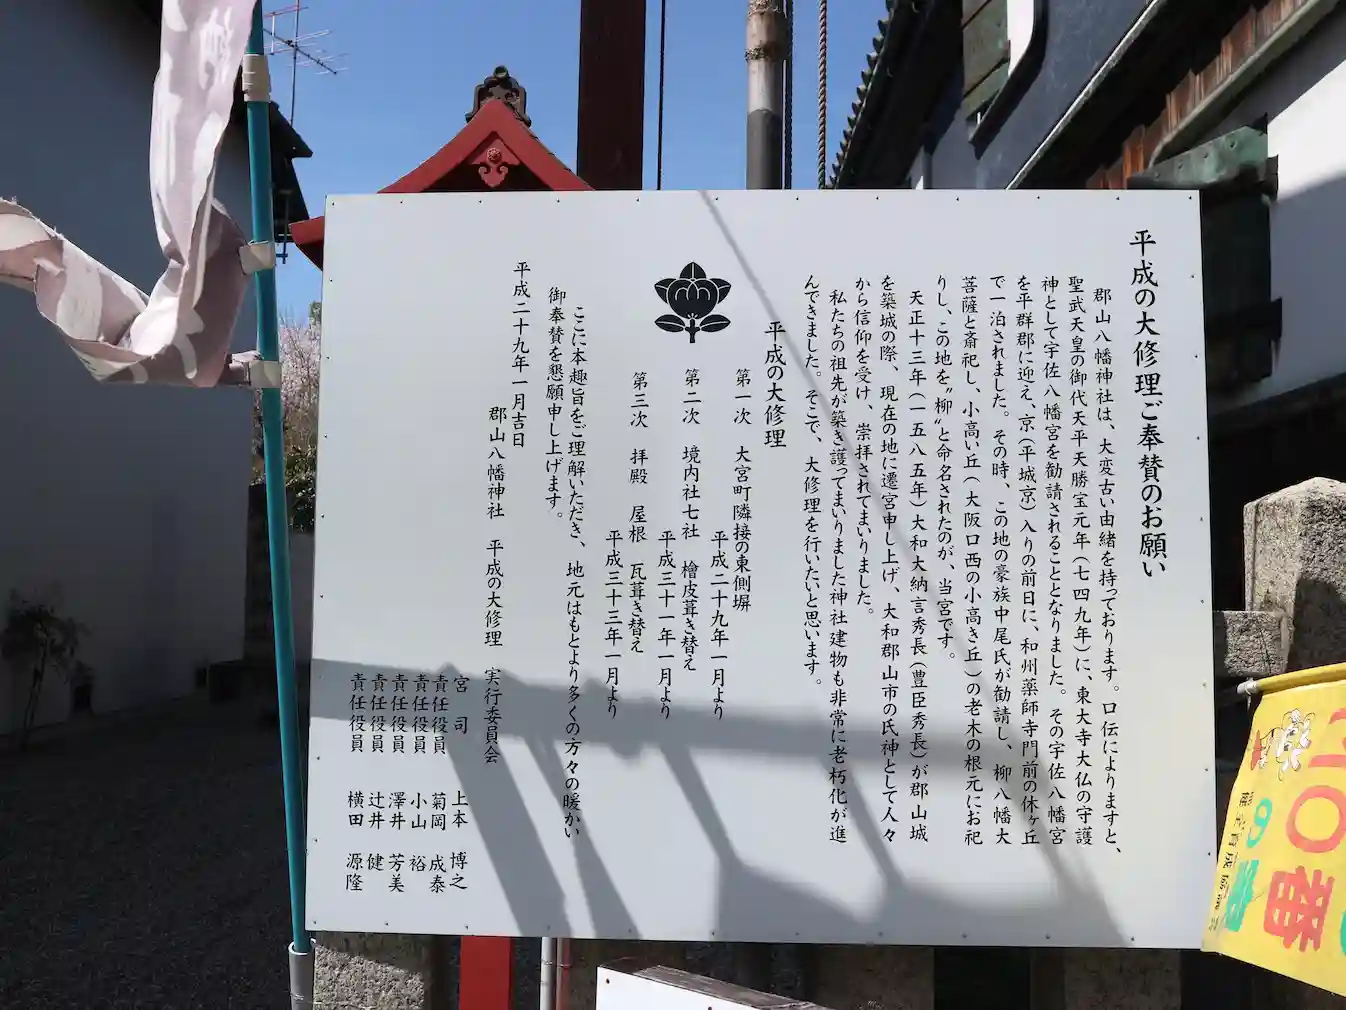 平成の大修理ご奉賛のお願い
郡山八幡神社は、大変古い由緒を持っております。口伝によりますと、
聖武天皇の御代天平天勝宝元年(七四九年)に、東大寺大仏の守護
神として宇佐八幡宮を勧請されることとなりました。その宇佐八幡宮
を平群郡に迎え、京(平城京)入りの前日に、和州薬師寺門前の休ヶ丘
で一泊されました。その時、この地の豪族中尾氏が勧請し、柳八幡大
菩薩と斎祀し、小高い丘(大阪口西の小高き丘)の老木の根元にお祀
りし、この地を〝柳〟と命名されたのが、当宮です。
天正十三年(一五八五年)大和大納言秀長(豊臣秀長)が郡山城
を築城の際、現在の地に遷宮申し上げ、大和郡山市の氏神として人々
から信仰を受け、崇拝されてまいりました。
私たちの祖先が築き護ってまいりました神社建物も非常に老朽化が進
んできました。そこで、大修理を行いたいと思います。
平成の大修理
第一次 大宮町隣接の東側塀
平成二十九年一月より
第二次 境内社七社 檜皮葺き替え
平成三十一年一月より
第三次 拝殿 屋根 瓦葺き替え
平成三十三年一月より
ここに本趣旨をご理解いただき、地元はもとより多くの方々の暖かい
御奉賛を懇願申し上げます。
平成二十九年一月吉日
郡山八幡神社 平成の大修理 実行委員会
宮司 上本 博之
責任役員 菊岡 成泰
責任役員 小山 裕
責任役員 澤井 芳美
責任役員 辻井 健
責任役員 横田 源隆
10番
の